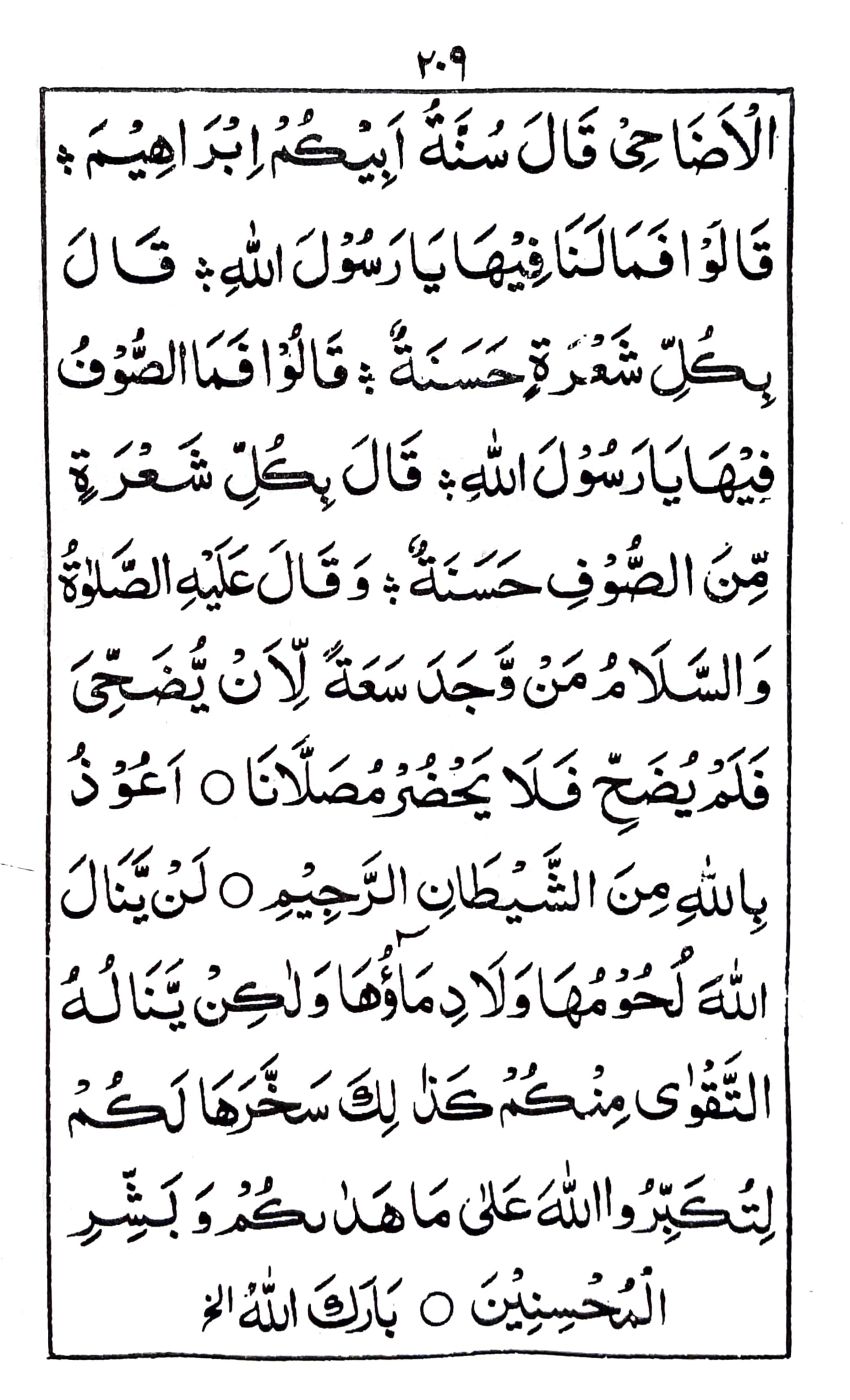 ٢٠٩
الْاَضَاحِیْ قَالَ سُنَّةُ اَبِيْكُمْ اِبْرَاهِيْمَ ؞
قَالَوْا فَمَا لَنَا فِيْهَا يَا رَسُوْلَ اللهِ ؞ قَالَ
بِكُلِّ شَعْرَةٍ حَسَنَةٌ ؞ قَالُوْا فَمَا الصُّوْفُ
فِيْهَا يَا رَسُوْلَ اللهِ ؞ قَالَ بِكُلِّ شَعْرَةٍ
مِّنَ الصُّوْفِ حَسَنَةٌ ؞ وَقَالَ عَلَيْهِ الصَّلٰوةُ
وَالسَّلَامُ مَنْ وَّجَدَ سَعَةً لِّاَنْ يُّضَحِّیَ
فَلَمْ يُضَحِّ فَلَا يَحْضُرْ مُصَلَّانَا ○ اَعُوْذُ
بِاللهِ مِنَ الشَّيْطَانِ الرَّجِيْمِ ○ لَنْ يَّنَالَ
اللهَ لُحُوْمُهَا وَلَا دِمَآؤُهَا وَلٰكِنْ يَّنَالُهُ
التَّقْوٰى مِنْكُمْ كَذٰلِكَ سَخَّرَهَا لَكُمْ
لِتُكَبِّرُوا اللهَ عَلٰى مَا هَدٰىكُمْ وَبَشِّرِ
الْمُحْسِنِيْنَ ○ بَارَكَ اللهُ الخ